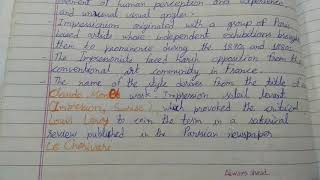 movement of human perception and experience
and unusual visual angles.
- Impressionism originated with a group of Paris
based artists whose independent exhibitions brought
them to prominence during the 1870s and 1880s.
- The Impressionists faced harsh opposition from the
conventional art community in France
- The name of the style derives from the title of a
Claude Monet work Impression soleil levant
(Impression, Sunrise), which provoked the critic
Louis Leroy to coin the term in a satirical
review published in the Parisian newspaper
Le Charivari
Always ahead